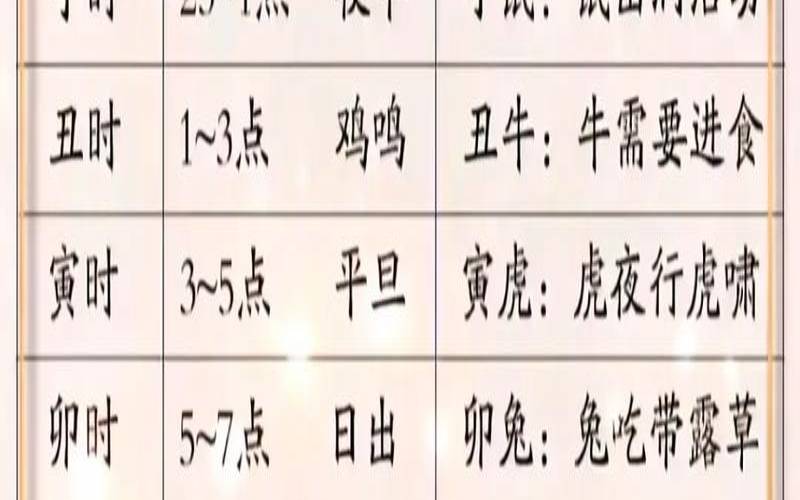 丑时 1~3点 鸡鸣 丑牛：牛需要进食
寅时 3~5点 平旦 寅虎：虎夜行虎啸
卯时 5~7点 日出 卯兔：兔吃带露草